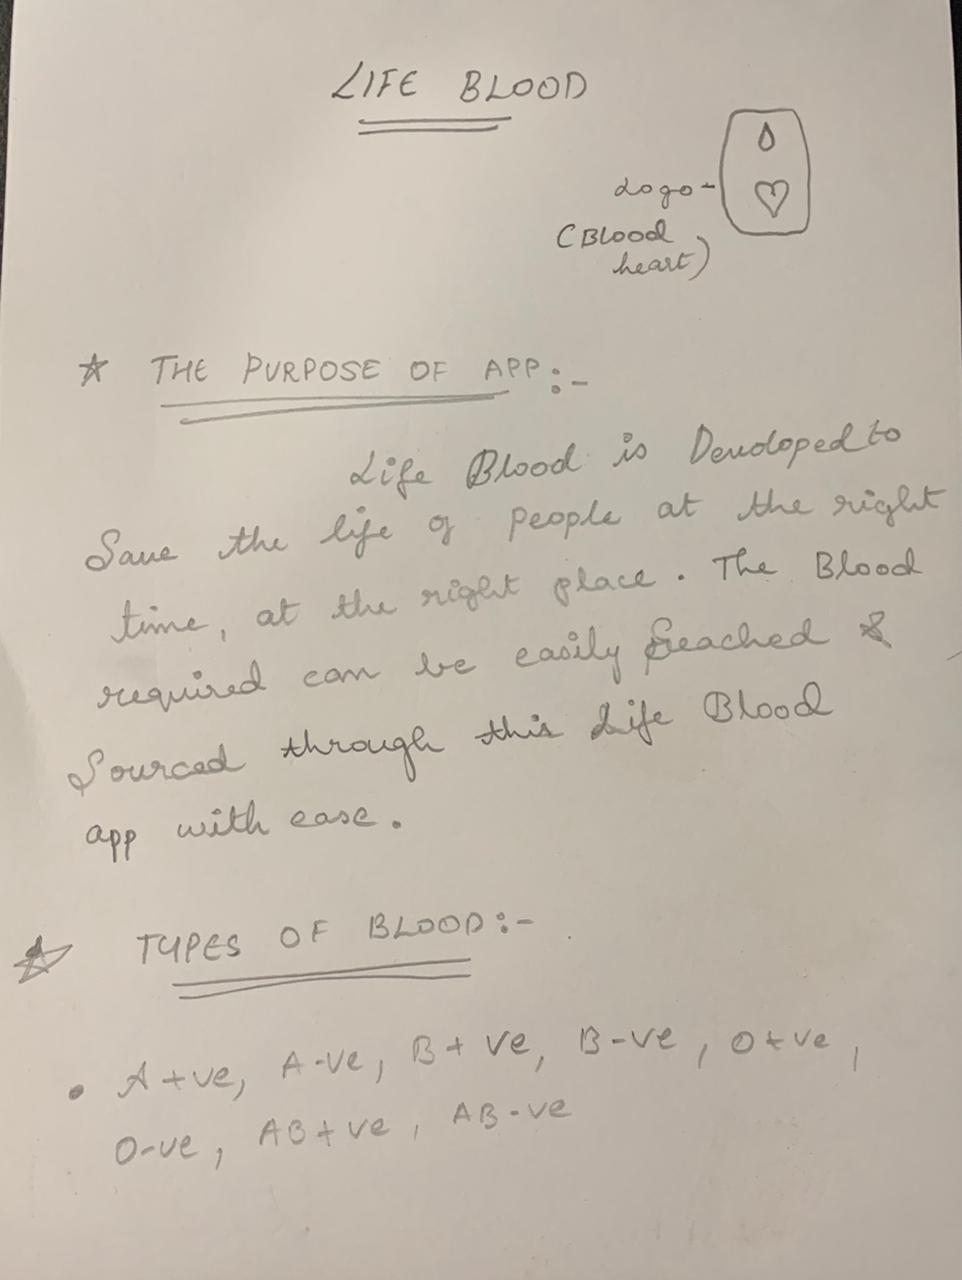 LIFE BLOOD
Logo -
(Blood
heart)
☆ THE PURPOSE OF APP :-
Life Blood is Developed to
Save the life of people at the right
time, at the right place. The Blood
required can be easily Reached &
Sourced through this Life Blood
app with ease.
☆ TYPES OF BLOOD :-
• A+ve, A-ve, B+ve, B-ve, O+ve,
O-ve, AB+ve, AB-ve